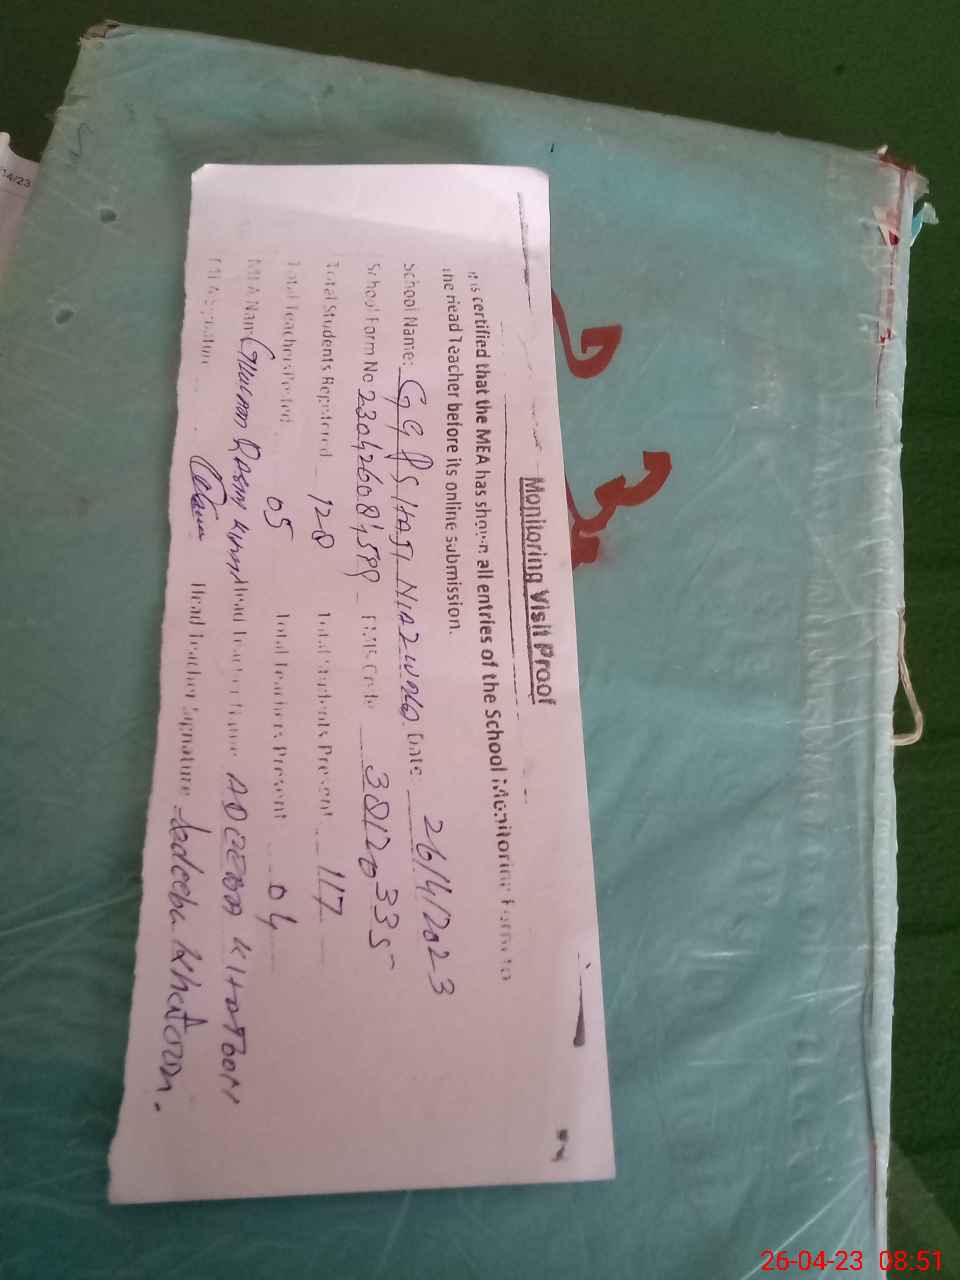 Monitoring Visit Proof
It is certified that the MEA has shown all entries of the School Monitoring Form to
the Head Teacher before its online submission.
School Name: GGPS HAJI NIAZ WALA Date 26/4/2023
School Form No 230426081599 EMIS Code 38120335
Total Students Registered 128 Total Students Present 117
Total Teachers Posted 05 Total Teachers Present 04
MEA Name Head Teacher Name ADEEBA KHATOON
MEA Signature Head Teacher Signature Adeeba Khatoon.
14/23
26-04-23 08:51